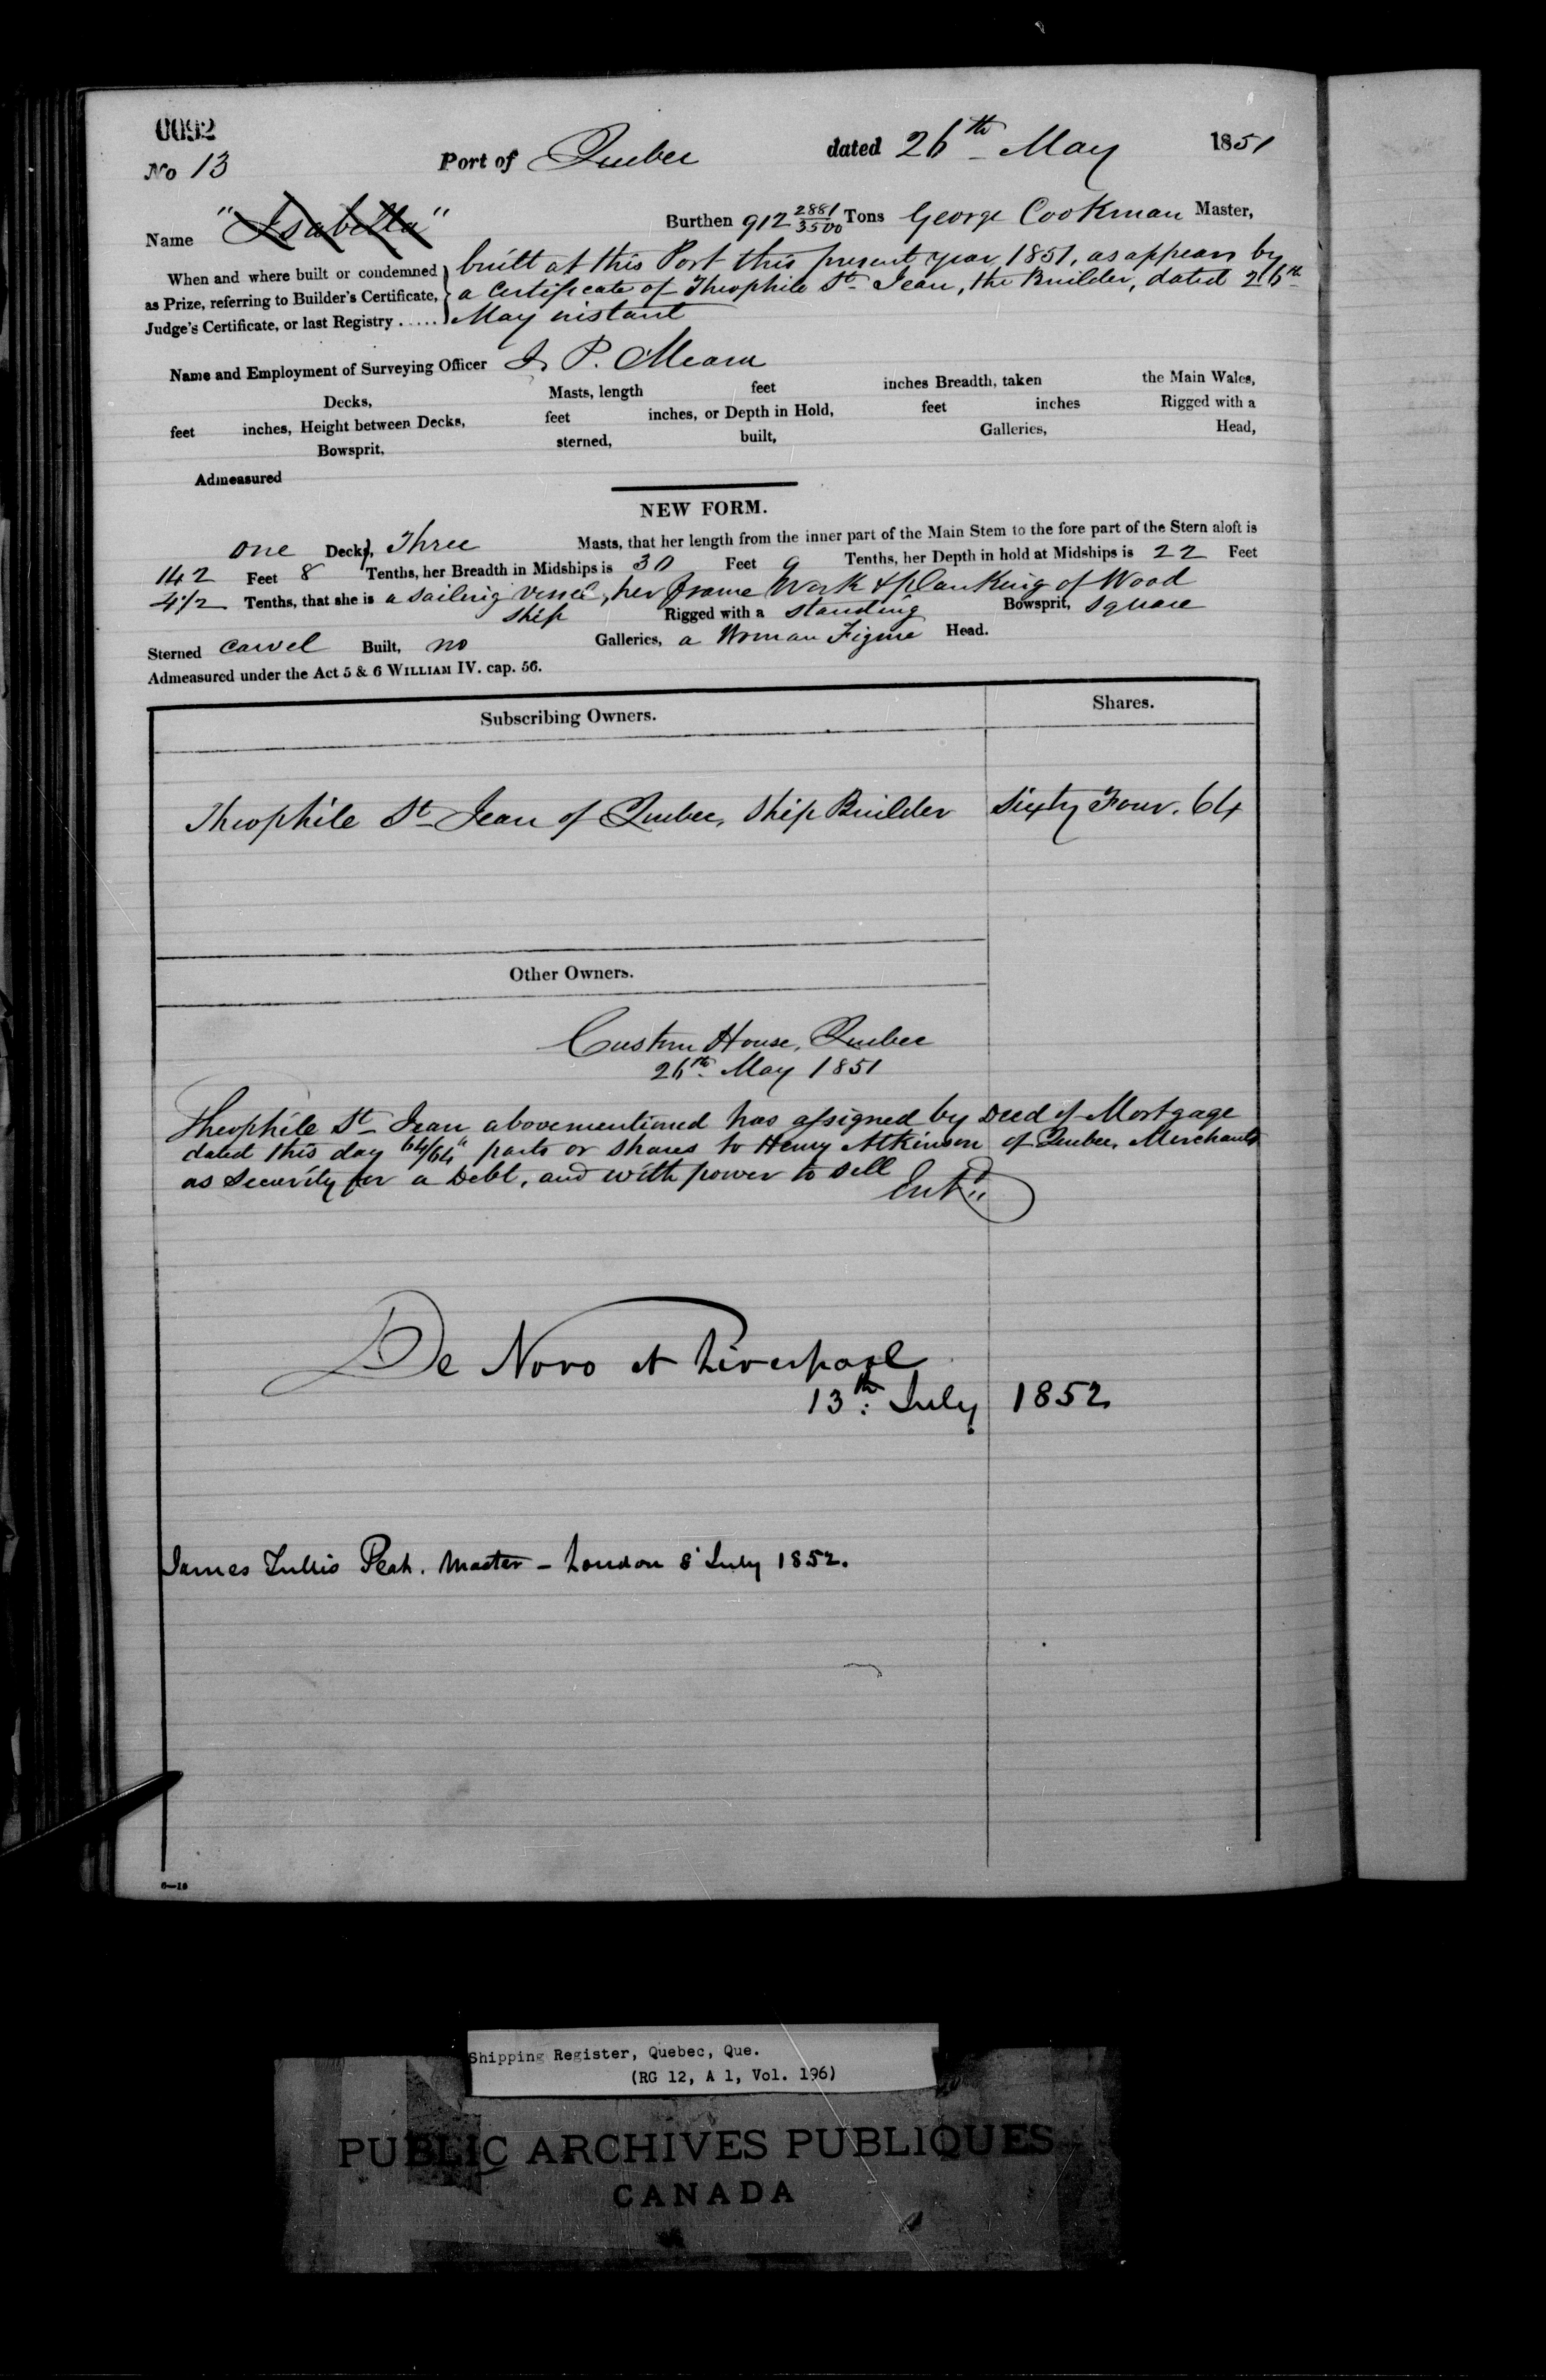 0092
No 13 Port of Quebec dated 26th May 1851
Name "Isabella" Burthen 912 2881/3500 Tons George Cookman Master,
When and where built or condemned as Prize, referring to Builder's Certificate, Judge's Certificate, or last Registry .....
built at this Port this present year 1851, as appears by
a Certificate of Theophile St Jean, the Builder, dated 26th
May instant
Name and Employment of Surveying Officer J. P. Meara
Decks, Masts, length feet inches Breadth, taken the Main Wales,
feet inches, Height between Decks, feet inches, or Depth in Hold, feet inches Rigged with a
Bowsprit, sterned, built, Galleries, Head,
Admeasured
NEW FORM.
one Decks, Three Masts, that her length from the inner part of the Main Stem to the fore part of the Stern aloft is
142 Feet 8 Tenths, her Breadth in Midships is 30 Feet 9 Tenths, her Depth in hold at Midships is 22 Feet
4 1/2 Tenths, that she is a sailing vessel, her frame Work & planking of Wood
ship Rigged with a standing Bowsprit, square
Sterned carvel Built, no Galleries, a Woman Figure Head.
Admeasured under the Act 5 & 6 WILLIAM IV. cap. 56.
Subscribing Owners. Shares.
Theophile St Jean of Quebec, Ship Builder Sixty Four. 64
Other Owners.
Custom House, Quebec
26th May 1851
Theophile St Jean abovementioned has assigned by Deed of Mortgage
dated this day 64/64" parts or shares to Henry Atkinson of Quebec, Merchant
as Security for a Debt, and with power to sell
Entd
De Novo at Liverpool
13th July 1852
James Master - London 8 July 1852.
6—18
Shipping Register, Quebec, Que.
(RG 12, A 1, Vol. 196)
PUBLIC ARCHIVES PUBLIQUES
CANADA